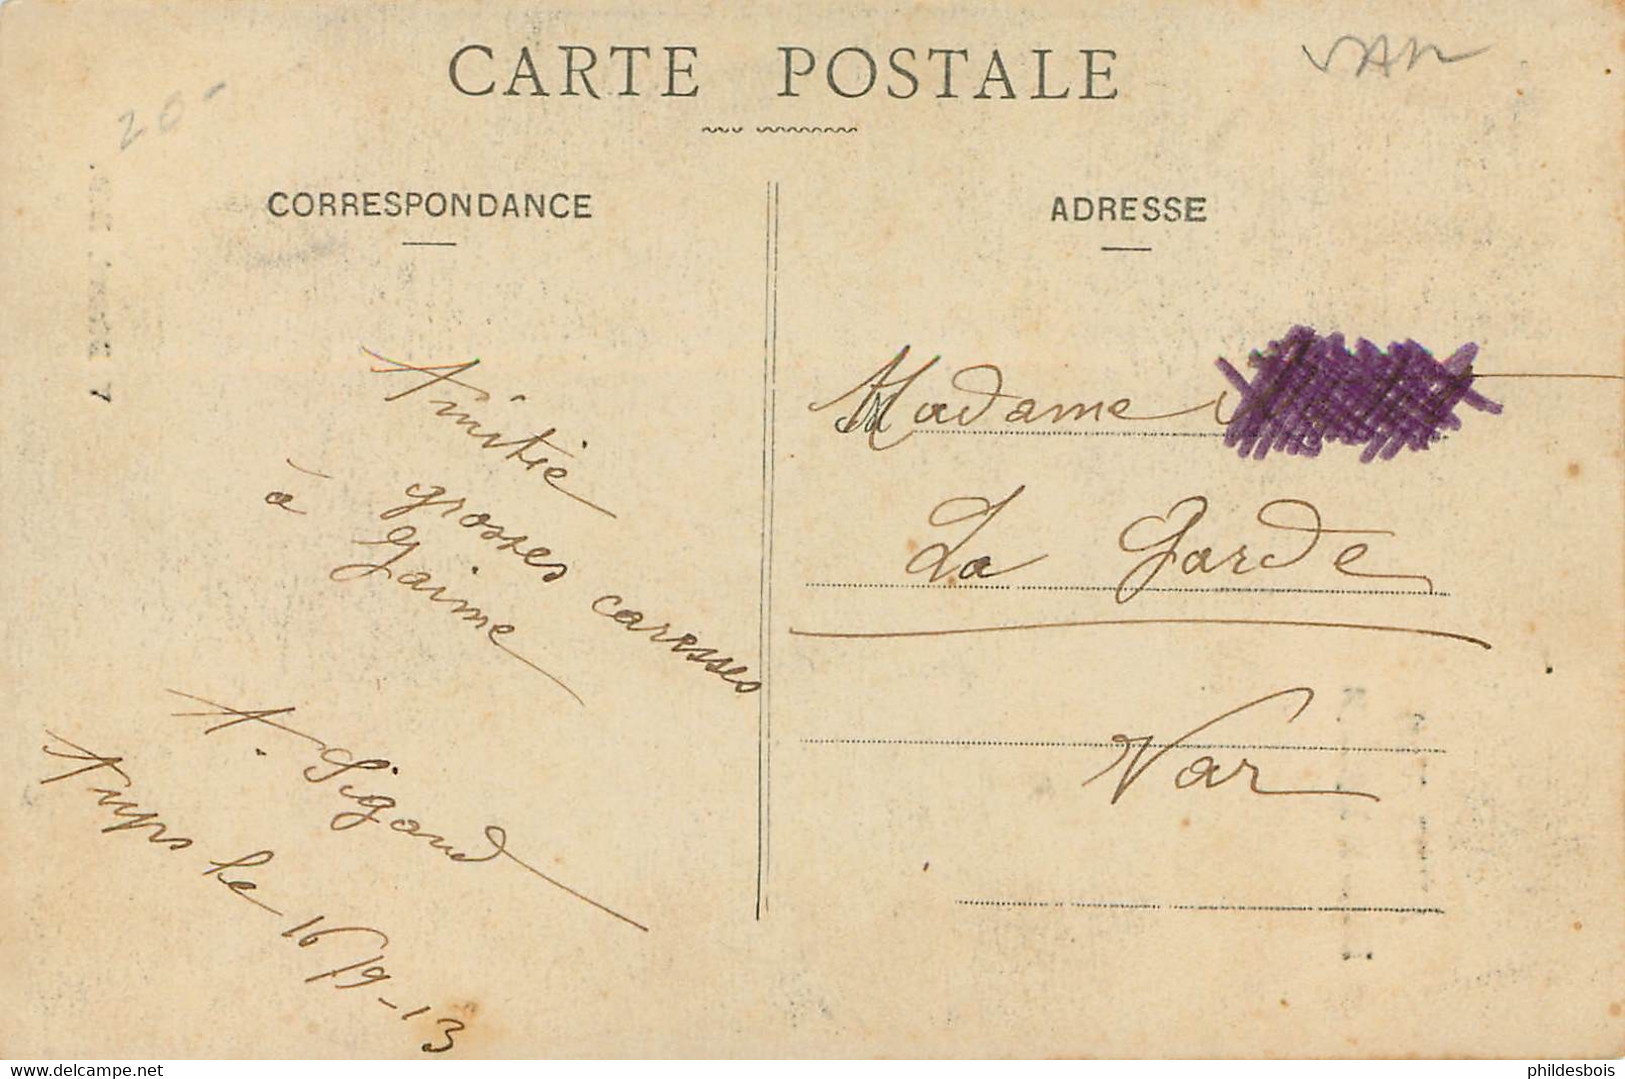 CARTE POSTALE
VAR
20-
CORRESPONDANCE
ADRESSE
Amitié
grosses caresses
à Jaime
A. Sigaud
Aups le 16/9-13
Madame
La Garde
Var
delcampe.net
phildesbois